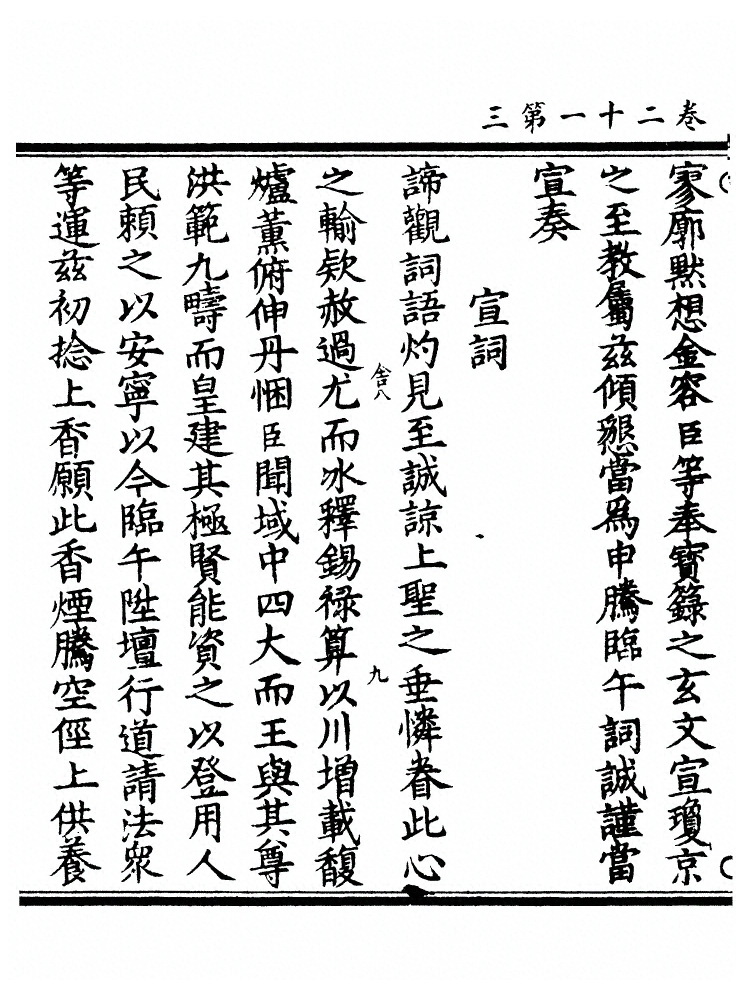 卷二十一第三
寥廓默想金容臣等奉寶籙之玄文宣瓊京
之至教屬茲傾懇當爲申騰臨午詞誠謹當
宣奏
宣詞
諦觀詞語灼見至誠諒上聖之垂憐眷此心
之輸欵赦過尤而冰釋錫禄算以川增載馥
舍八
九
爐薰俯伸丹悃臣聞域中四大而王與其尊
洪範九疇而皇建其極賢能資之以登用人
民賴之以安寧以今臨午陞壇行道請法衆
等運茲初捻上香願此香煙騰空徑上供養